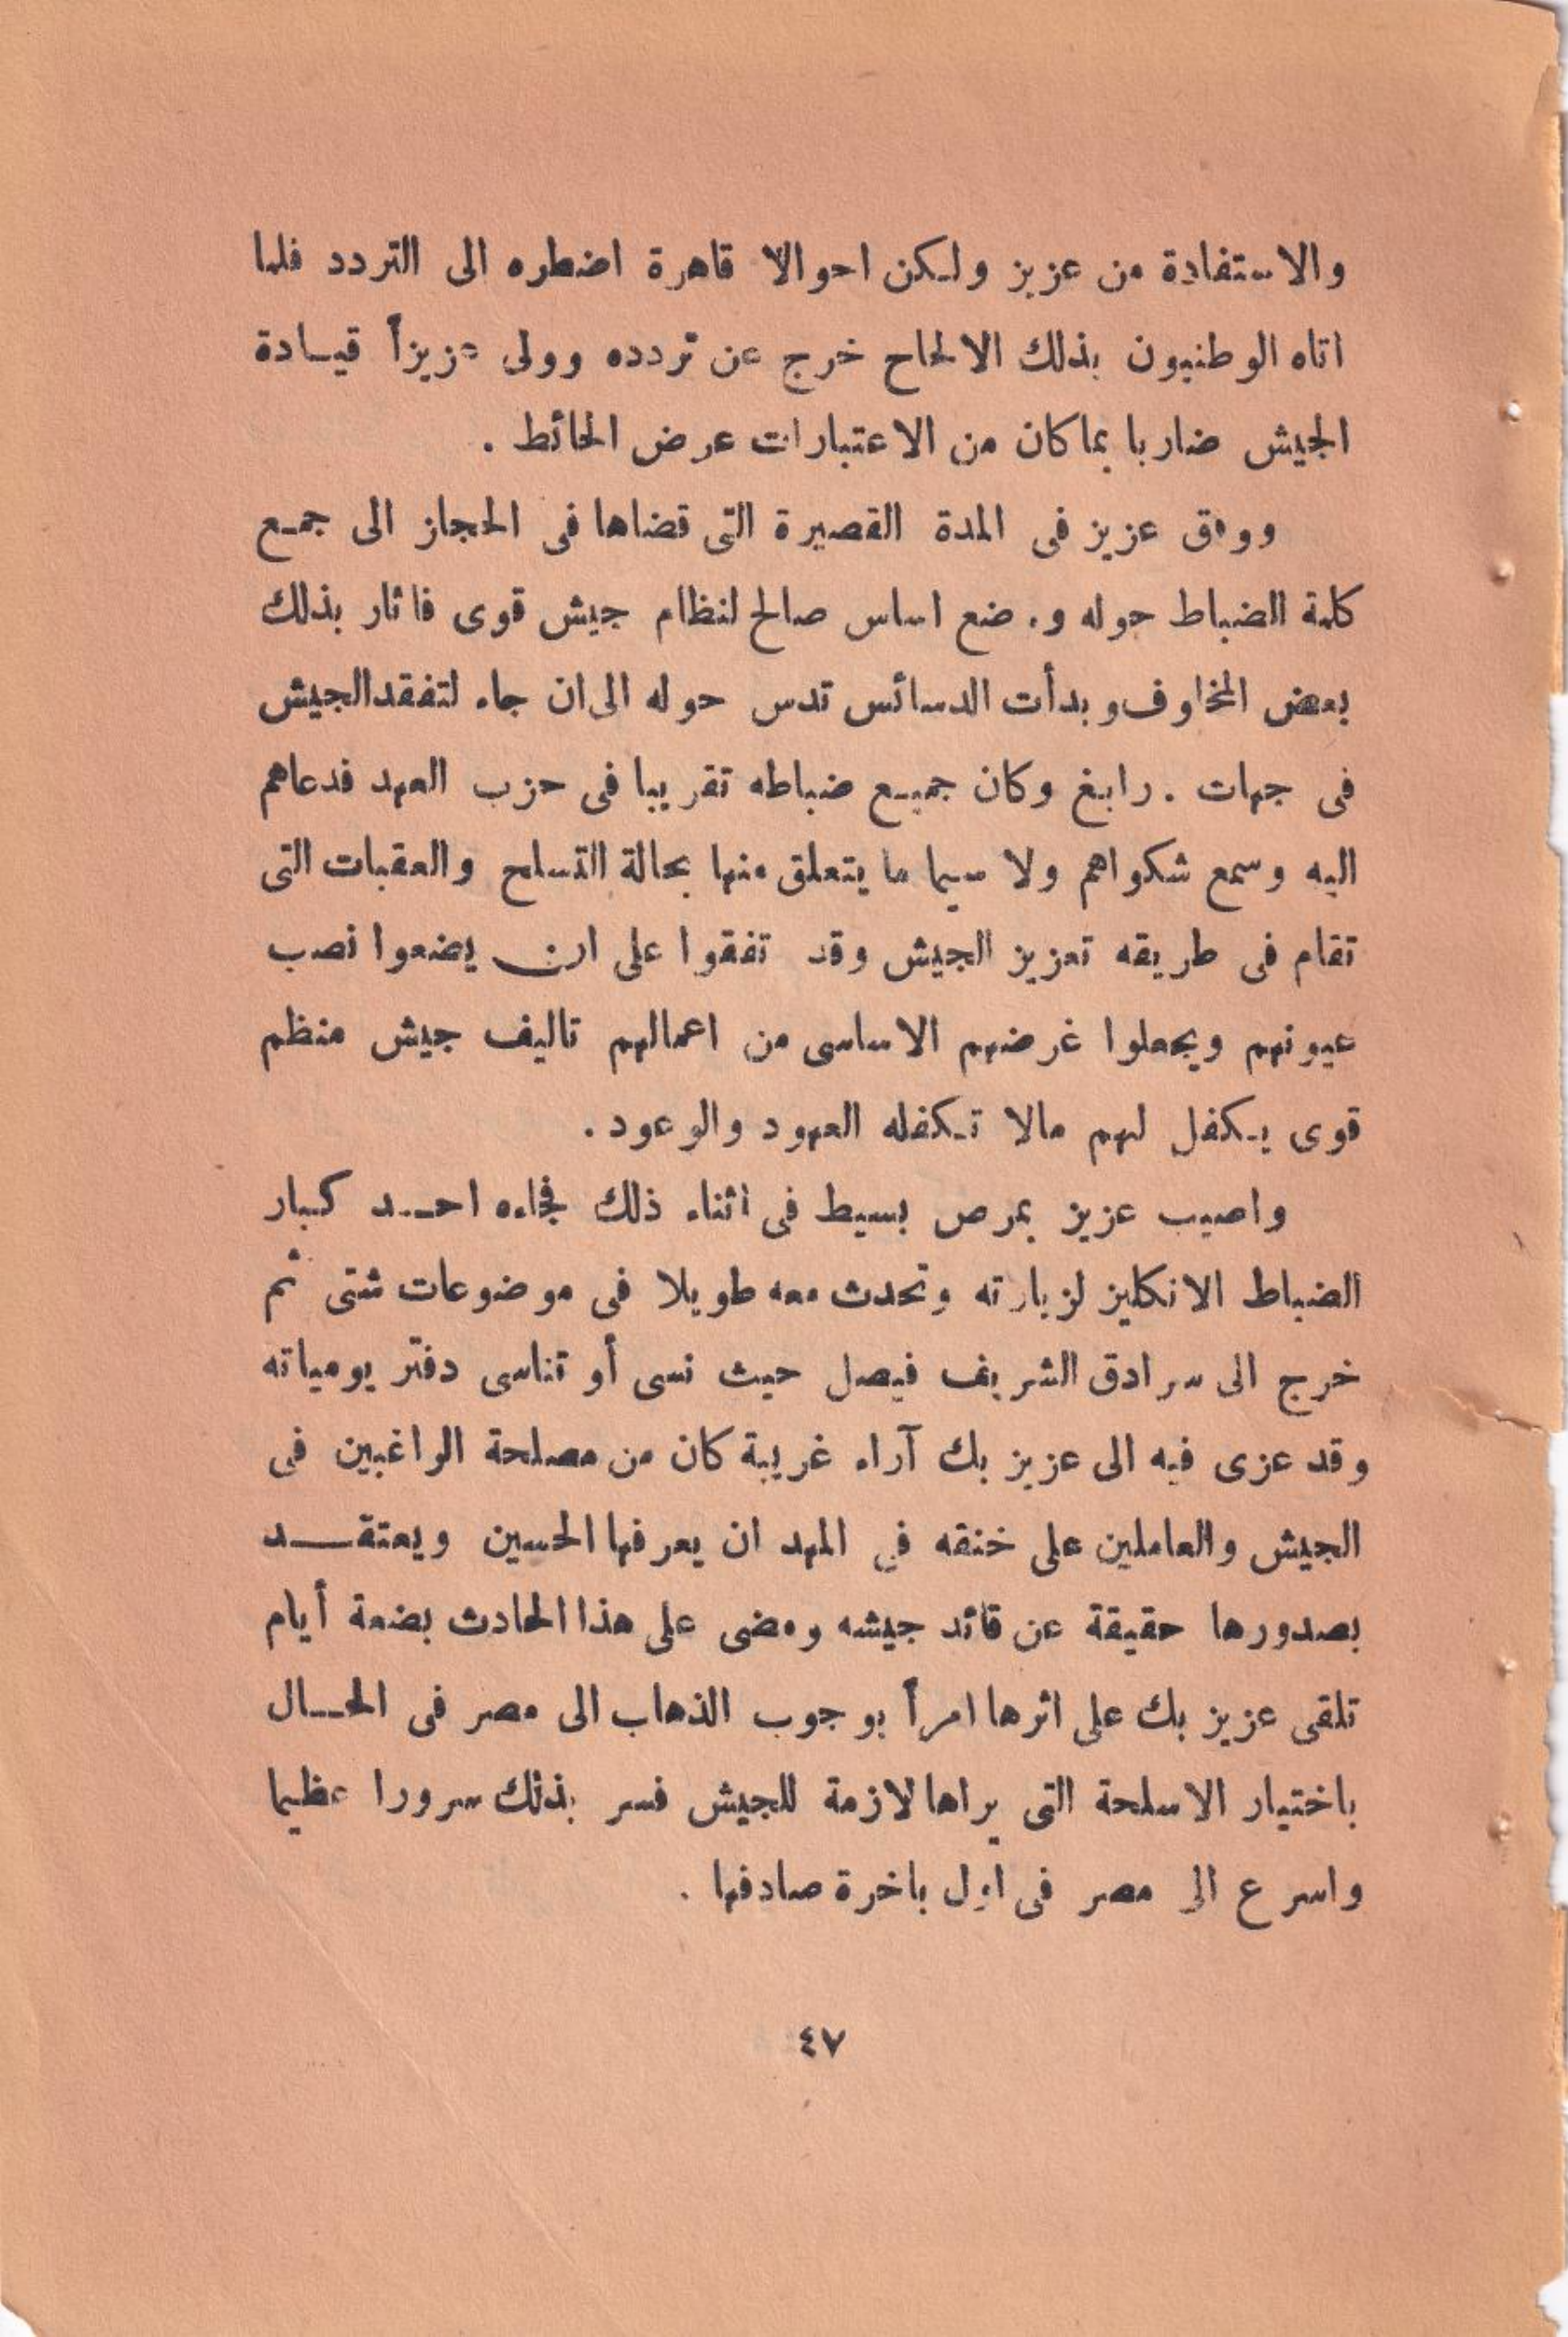 والاستفادة من عزيز ولكن احوالا قاهرة اضطره الى التردد فلما
اتاه الوطنيون بذلك الالحاح خرج عن تردده وولى عزيزاً قيادة
الجيش ضاربا بما كان من الاعتبارات عرض الحائط .
ووفق عزيز فى المدة القصيرة التى قضاها فى الحجاز الى جمع
كلمة الضباط حوله و. ضع اساس صالح لنظام جيش قوى فاثار بذلك
بعض المخاوف وبدأت الدسائس تدس حوله الى ان جاء لتفقد الجيش
فى جهات . رابغ وكان جميع ضباطه تقريبا فى حزب العهد فدعاهم
اليه وسمع شكواهم ولا سيما ما يتعلق منها بحالة التسلح والعقبات التى
تقام فى طريقه تعزيز الجيش وقد تفقوا على ان يضعوا نصب
عيونهم ويجعلوا غرضهم الاساسى من اعمالهم تاليف جيش منظم
قوى يكفل لهم مالا تكفله العهود والوعود .
واصيب عزيز بمرص بسيط فى اثناء ذلك فجاءه احد كبار
الضباط الانكليز لزيارته وتحدث معه طويلا فى موضوعات شتى ثم
خرج الى سرادق الشريف فيصل حيث نسى أو تناسى دفتر يومياته
وقد عزى فيه الى عزيز بك آراء غريبة كان من مصلحة الواغبين فى
الجيش والعاملين على خنقه في المهد ان يعرفها الحسين ويعتقد
بصدورها حقيقة عن قائد جيشه ومضى على هذا الحادث بضعة أيام
تلقى عزيز بك على اثرها امراً بوجوب الذهاب الى مصر فى الحال
باختيار الاسلحة التى يراها لازمة للجيش فسر بذلك سرورا عظيما
واسرع الى مصر فى اول باخرة صادفها .
٤٧